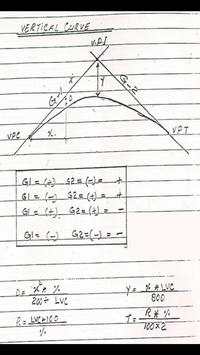 VERTICAL CURVE
VPI
G-1
x
Y
G-2
D
VPC
x
VPT
G1 = (+) G2 = (-) = +
G1 = (-) G2 = (+) = +
G1 = (+) G2 = (+) = -
G1 = (-) G2 = (-) = -
D = x² * % / 200 ÷ LVC
Y = * LVC / 800
R = LVC * 100 / %
T = R * % / 100 x 2